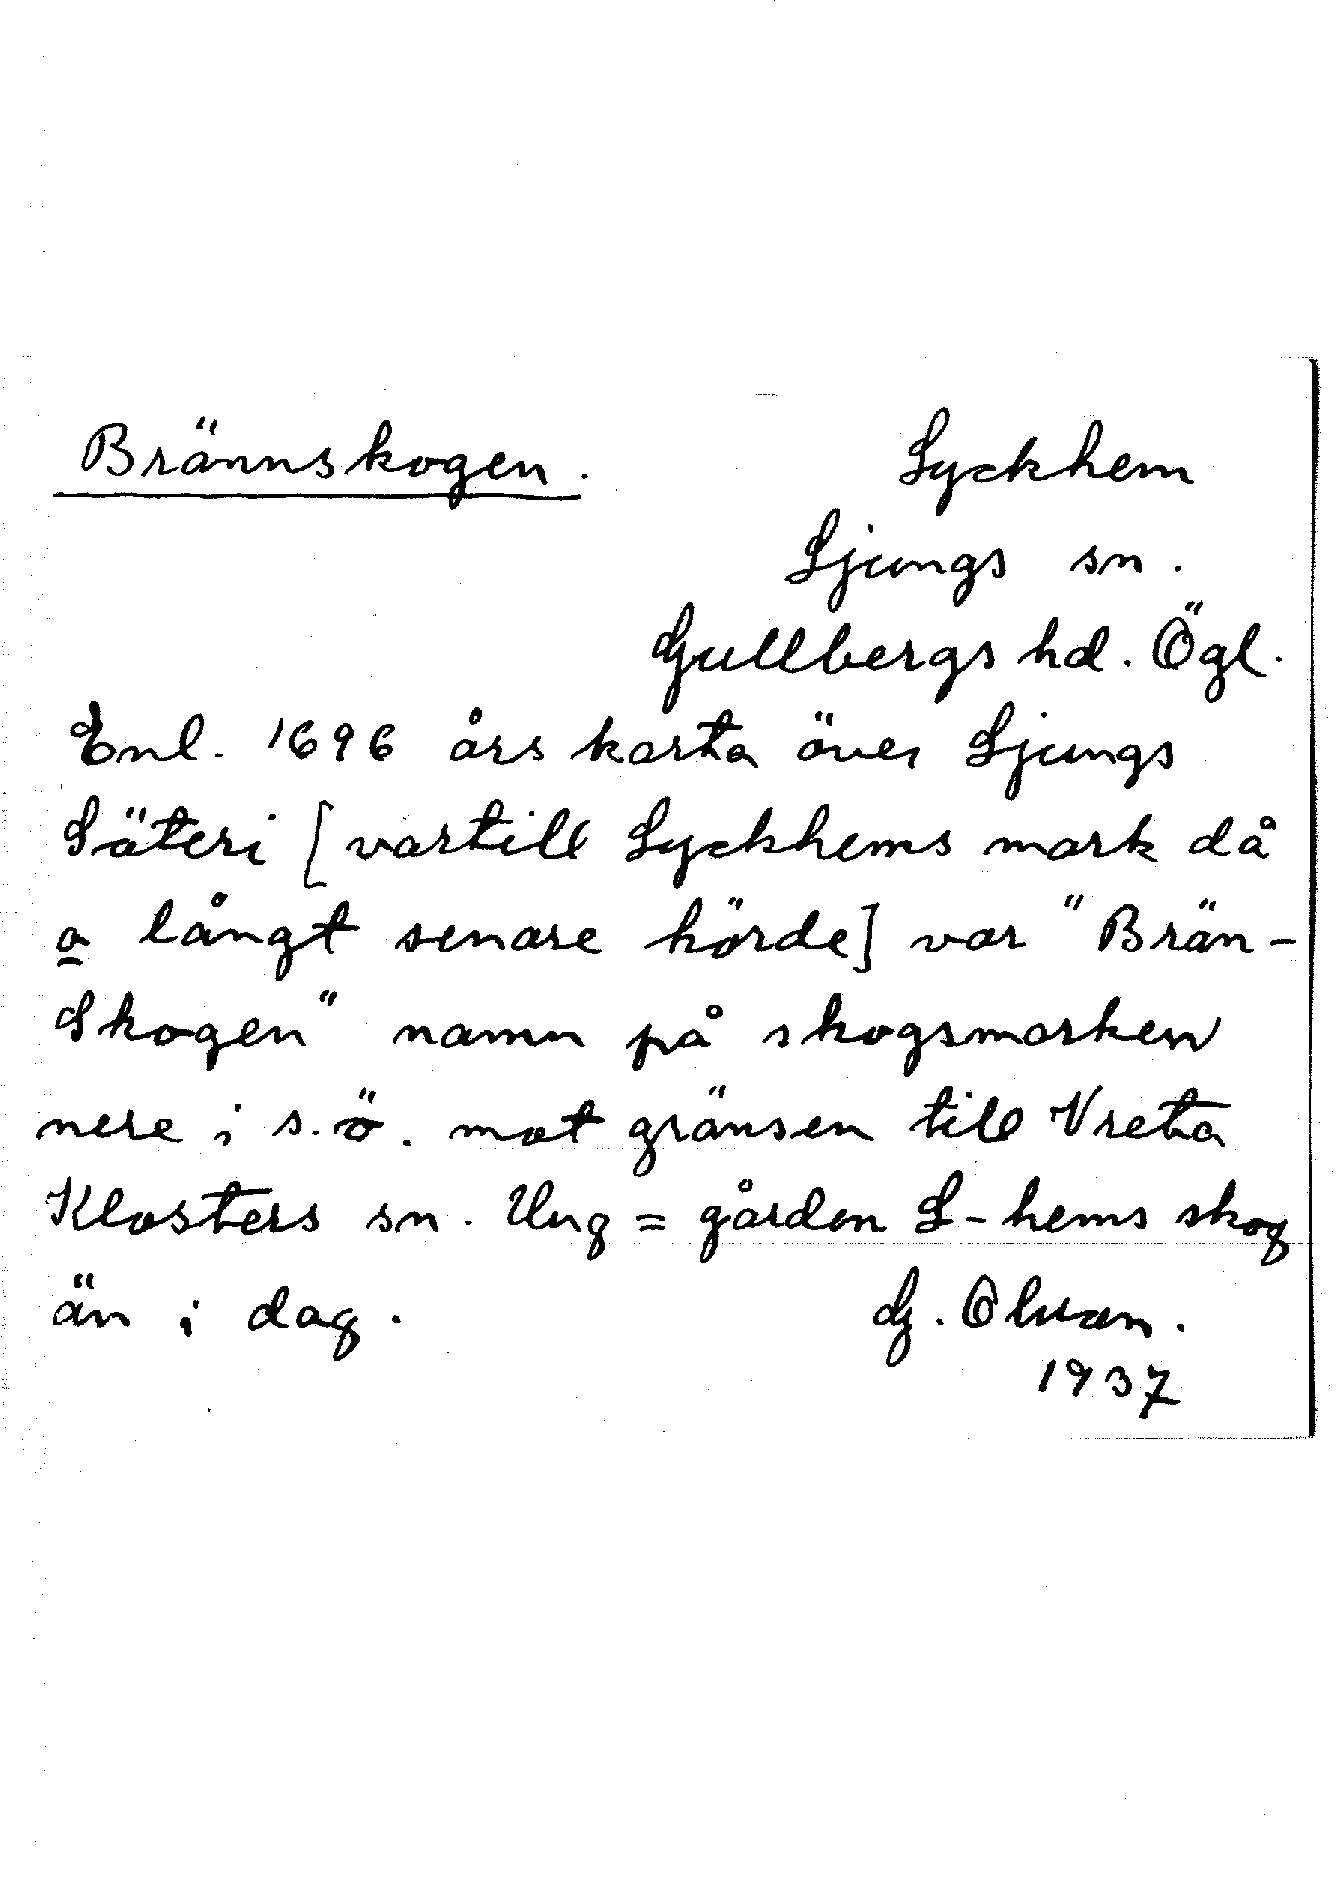 Brännskogen. Lyckhem
Ljungs sn.
Gullbergs hd. Ögl.
Enl. 1696 års karta över Ljungs
Säteri [vartill Lyckhems mark då
o långt senare hörde] var "Brän-
Skogen" namn på skogsmarken
nere i s.ö. mot gränsen till Vreta
Klosters sn. Ung = gården L-hems skog
än i dag. G. Olsson.
1937